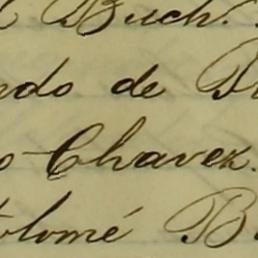 Buch.
ndo de
o Chavez.
tolomé B